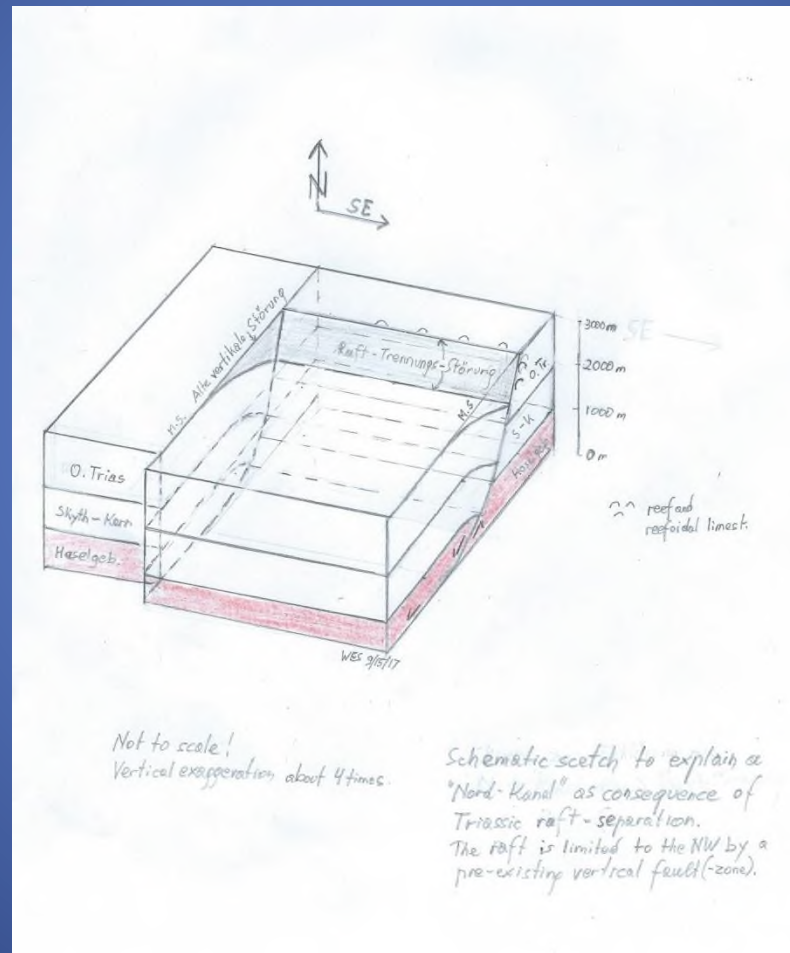 N
SE
3000 m
SE
2000 m
1000 m
0 m
Alte vertikale Störung
M.S.
Raft-Trennungs-Störung
M.S.
O.Tr.
S-K
O. Trias
Skyth-Karn
Haselgeb.
reef and
reefoidal limest.
WES 9/15/17
Not to scale!
Vertical exaggeration about 4 times.
Schematic scetch to explain a
"Nord-Kanal" as consequence of
Triassic raft-separation.
The raft is limited to the NW by a
pre-existing vertical fault(-zone).